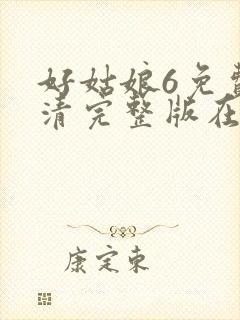 好姑娘6免费
清完整版在
康定东